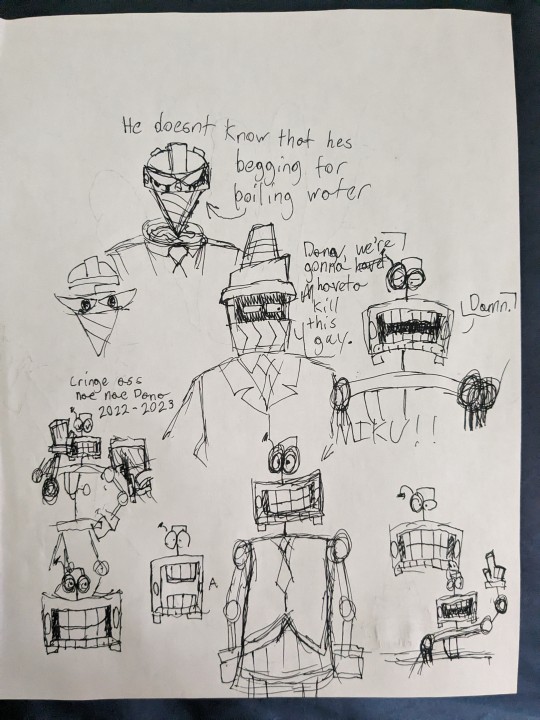 He doesnt know that hes
begging for
boiling water
Dana, we're
gonna
haveto
kill
this
gay.
Damn.
Cringe ass
nae nae Dana
2022-2023
MIKU!!
A.